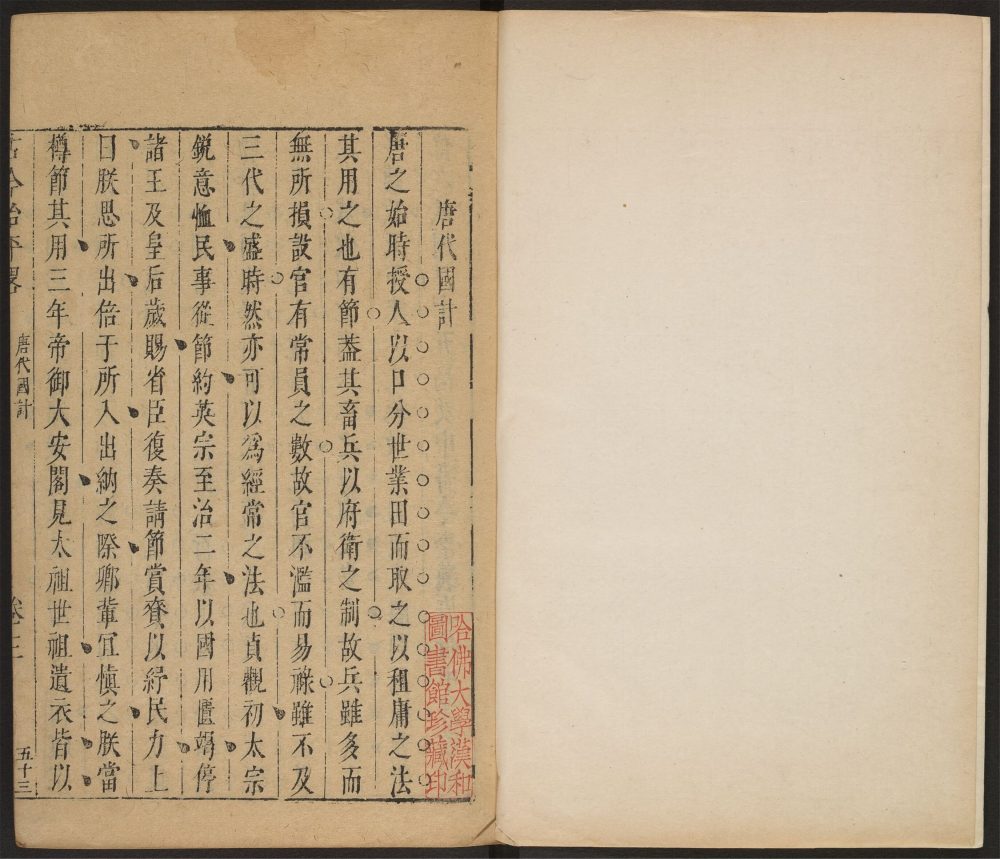 唐代國計
唐之始時授人以口分世業田而取之以租庸之法
其用之也有節葢其畜兵以府衛之制故兵雖多而
無所損設官有常員之數故官不濫而易祿雖不及
三代之盛時然亦可以爲經常之法也貞觀初太宗
鋭意恤民事從節約英宗至治二年以國用匱竭停
諸王及皇后歲賜省臣復奏請節賞賚以紓民力上
曰朕思所出倍于所入出納之際卿輩宜愼之朕當
樽節其用三年帝御大安閣見太祖世祖遺衣皆以
古今治平畧
唐代國計
卷三
五十三
哈佛大學漢和
圖書館珍藏印